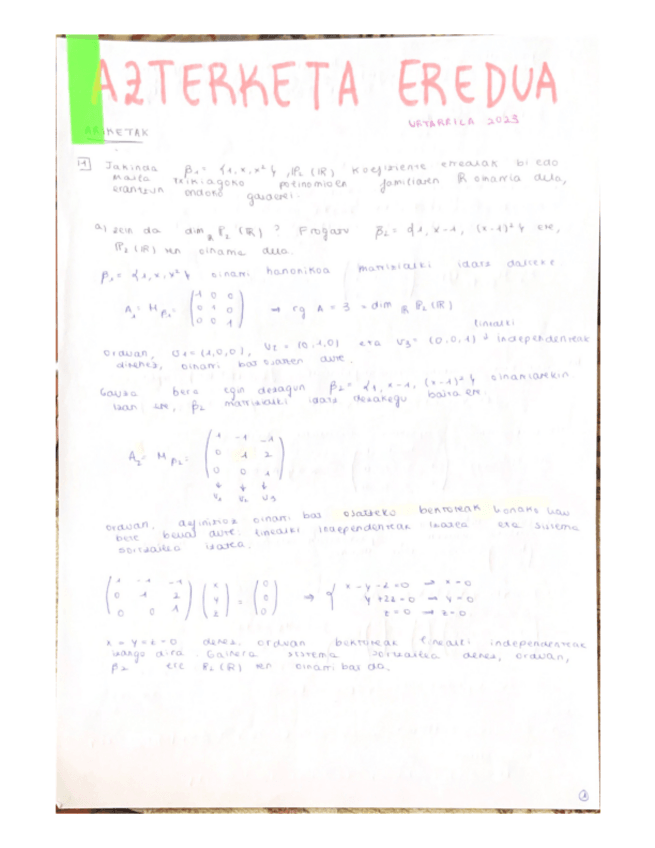 AZTERKETA EREDUA
URTARRILA 2023
ARIKETAK
1 Jakinda β₁ = {1, x, x²}, P₂(R) koefiziente errealak bi edo
maila txikiagoko polinomioen familiaren R oinarria dela,
erantzun ondoko galderei.
a) zein da dim_R P₂(R)? Frogatu β₂ = {1, x-1, (x-1)²} ere,
P₂(R) ren oinarria dela.
β₁ = {1, x, x²} oinarri kanonikoa matrizialki idatz daiteke
A₁ = M_β₁ = (1 0 0
0 1 0
0 0 1) → rg A = 3 = dim_R P₂(R)
linealki
orduan, v₁ = (1,0,0), v₂ = (0,1,0) eta v₃ = (0,0,1) independenteak
direnez, oinarri bat osatzen dute.
Gauza bera egin dezagun β₂ = {1, x-1, (x-1)²} oinarriarekin
izan ere, β₂ matrizialki idatz dezakegu baita ere.
A₂ = M_β₂ = (1 -1 -1
0 1 2
0 0 1)
↓ ↓ ↓
v₁ v₂ v₃
orduan, oinarri bat osatzeko bektoreak honako hau
bete behar dute, linealki independenteak izatea eta sistema
sortzailea izatea.
(1 -1 -1) (x) = (0) → { x - y - z = 0 → x = 0
(0 1 2) (y) (0) y + 2z = 0 → y = 0
(0 0 1) (z) (0) z = 0 → z = 0
x = y = z = 0 denez, orduan bektoreak linealki independenteak
izango dira. Gainera sistema sortzailea denez, orduan,
β₂ ere P₂(R) ren oinarri bat da.
1